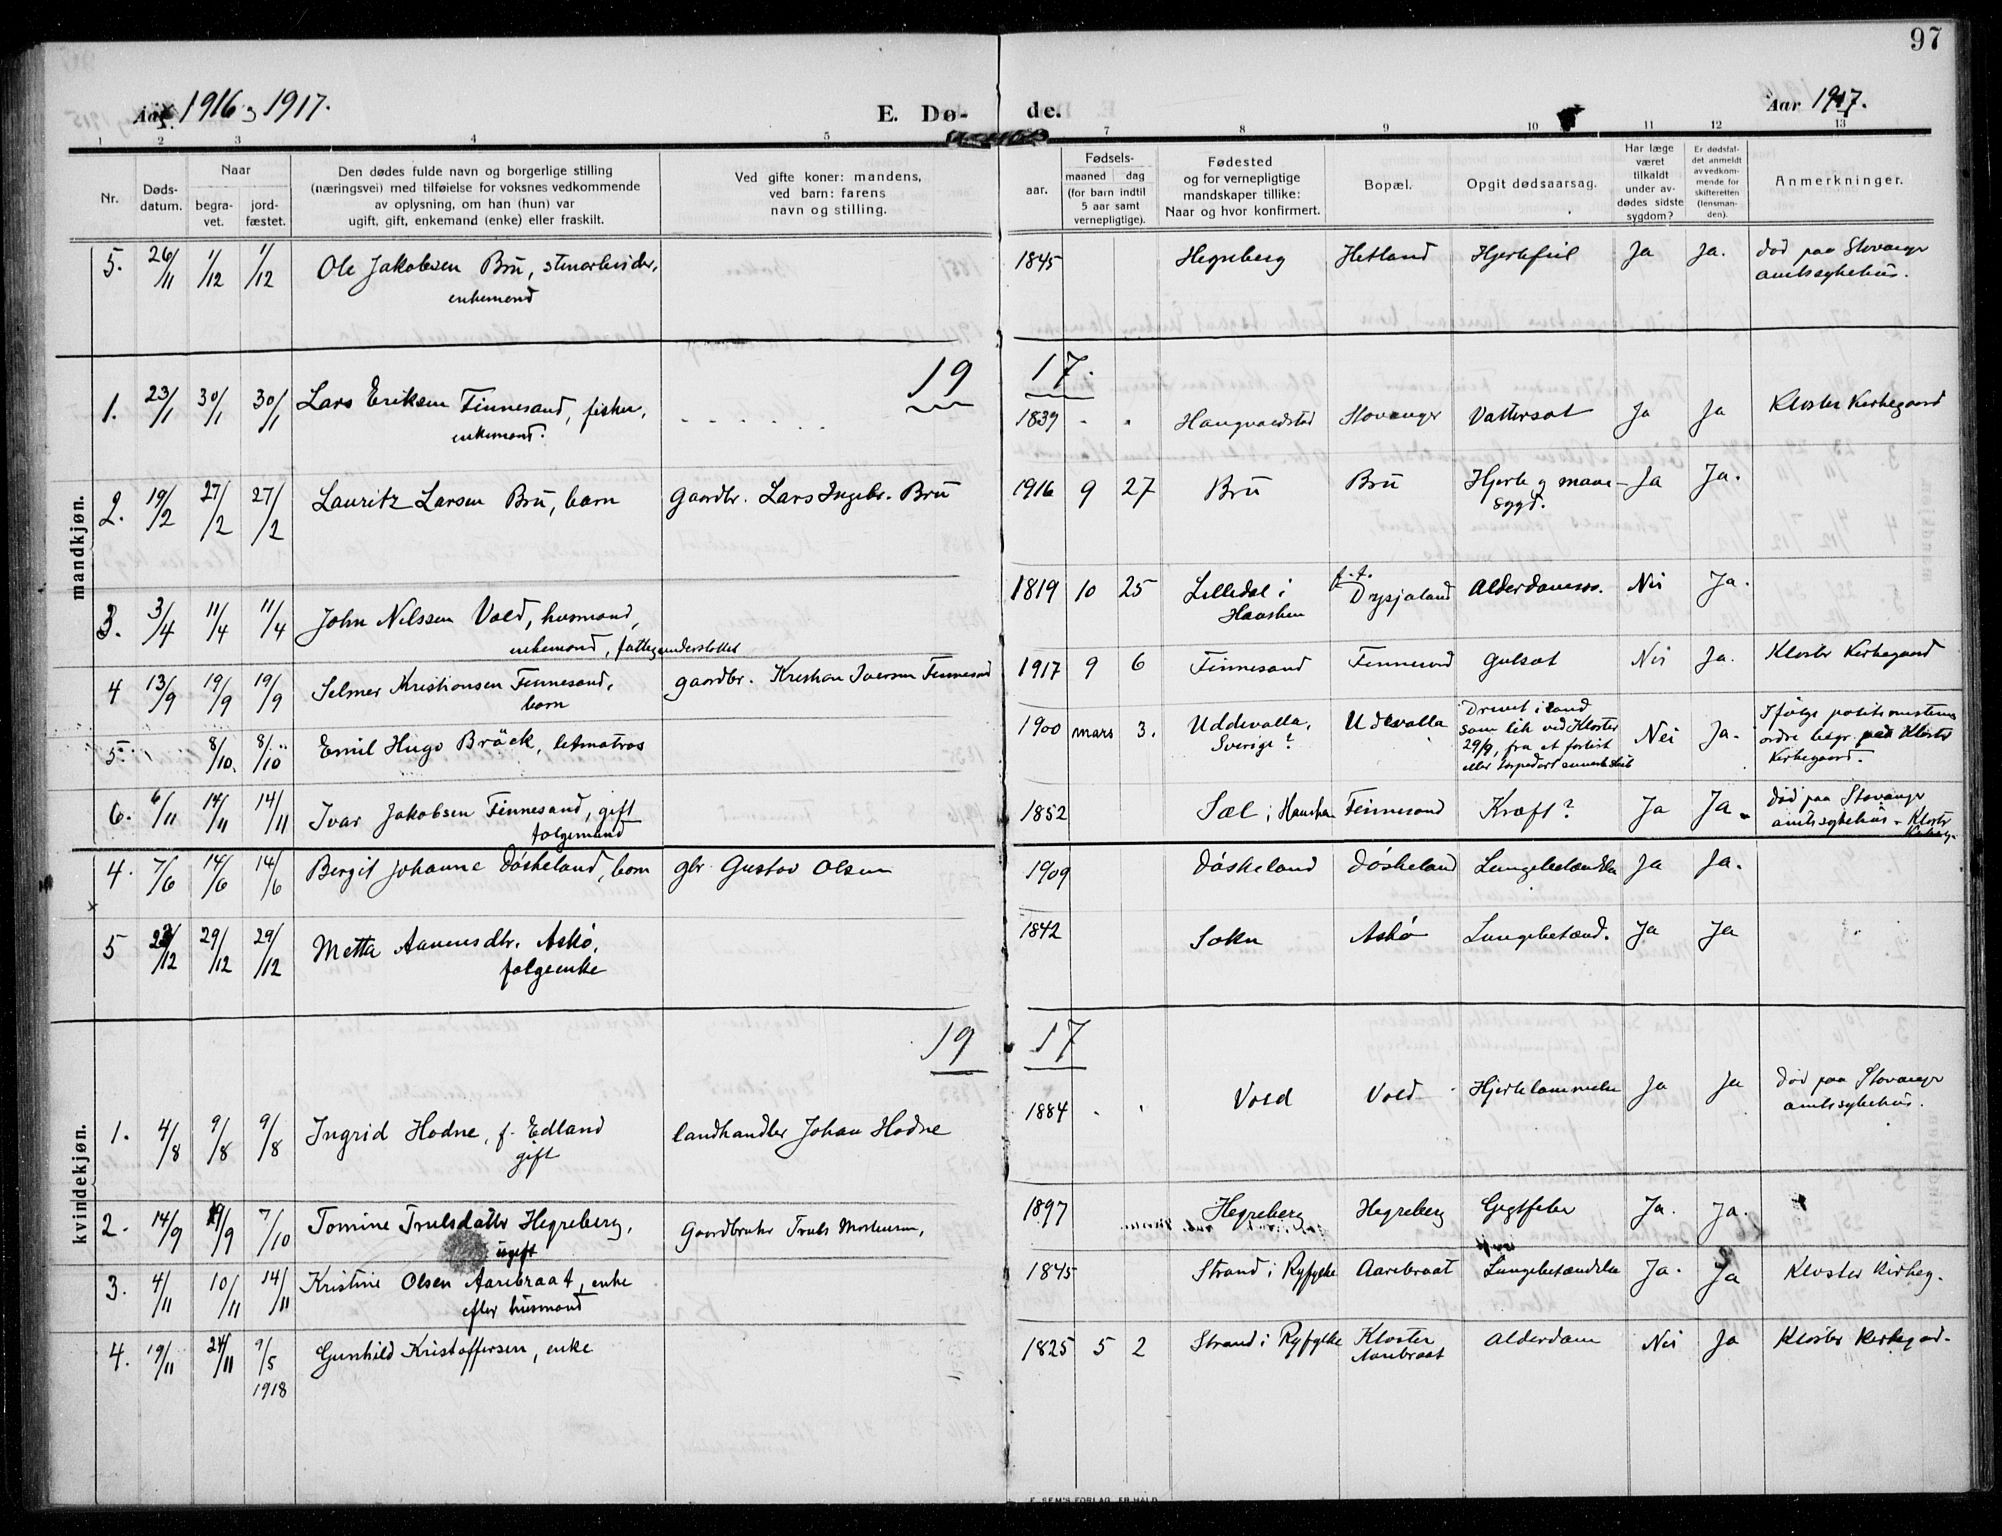 97
Aar 1916 3 1917.
E. Dø-
de.
Aar 1917.
1 2 3 4 5 7 8 9 10 11 12 13
Nr.
Døds-
datum.
Naar
begra-
vet.
jord-
fæstet.
Den dødes fulde navn og borgerlige stilling
(næringsvei) med tilføielse for voksnes vedkommende
av oplysning, om han (hun) var
ugift, gift, enkemand (enke) eller fraskilt.
Ved gifte koner: mandens,
ved barn: farens
navn og stilling.
aar.
Fødsels-
maaned dag
(for barn indtil
5 aar samt
vernepligtige).
Fødested
og for vernepligtige
mandskaper tillike:
Naar og hvor konfirmert.
Bopæl.
Opgit dødsaarsag.
Har læge
været
tilkaldt
under av-
dødes sidste
sygdom?
Er dødsfal-
det anmeldt
av vedkom-
mende for
skifteretten
(lensman-
den).
Anmerkninger.
mandkjøn.
5. 26/11 1/12 1/12 Ole Jakobsen Bru, stenarbeider, 1845 Hegreberg Hetland Hjertefeil Ja Ja. Død paa Stavanger
enkemand
amtssykehus.
19 17.
1. 23/1 30/1 30/1 Lars Eriksen Finnesand, fisker, 1839 Haugvaldstad Stavanger Vattersot Ja Ja Kloster Kirkegaard
enkemand.
2. 19/2 27/2 27/2 Lauritz Larsen Bru, barn Gaardbr. Lars Ingebr. Bru 1916 9 27 Bru Bru Hjerte og mave- Ja Ja.
sygd.
3. 3/4 11/4 11/4 John Nilssen Vold, husmand, 1819 10 25 Lilledal i f.t. Drysjaland Alderdomssv. Nei Ja.
enkemand, fattigunderstøttet
Hausken
4 13/9 19/9 19/9 Selmer Kristiansen Finnesand, gaardbr. Kristian Iversen Finnesand 1917 9 6 Finnesand Finnesand Gulsot Nei Ja. Kloster Kirkegaard
barn
5. 8/10. 8/10 Emil Hugo Bräck, letmatros 1900 mars 3. Uddevalla, Udevalla Nei Ja.
Sverige?
Drevet i land
som lik ved Kloster
29/9, fra et forlist
eller torpedert svensk skib
Ifølge politimesterens
ordre begr. paa Kloster
Kirkegaard.
6. 6/11 14/11 14/11 Ivar Jakobsen Finnesand, gift 1852 Sæl i Hausken Finnesand Kræft? Ja Ja. Død paa Stavanger
folgemand
amtssykehus - Kloster
Kirkeg.
4. 7/6 14/6 14/6 Bergit Johanne Døskeland, barn gbr Gustav Olsen 1909 Døskeland Døskeland Lungebetændelse Ja Ja.
5 29/12 29/12 Metta Aanensdtr. Askø, 1842 Sokn Askø Lungebetænd. Ja Ja
folgeenke
19 17
kvindekjøn.
1. 4/8 9/8 9/8 Ingrid Hodne, f. Edland landhandler Johan Hodne 1884 Vold Vold Hjertelammelse Ja Ja Død paa Stavanger
gift
amtssykehus.
2. 14/9 19/9 7/10 Tomine Trulsdatter Hegreberg, Gaardbruker Truls Mortensen, 1897 Hegreberg Hegreberg Gigtfeber Ja. Ja.
ugift
3. 4/11 10/11 14/11 Kristine Olsen Aarebraat, enke 1845 Strand i Ryfylke Aarebraat Lungebetændelse Ja. Ja Kloster Kirkeg.
efter husmand
4. 19/11 24/11 9/5 Gunhild Kristoffersen, enke 1825 5 2 Strand i Ryfylke Kloster Alderdom Nei Ja Kloster Kirkegd.
1918
Aarebraat